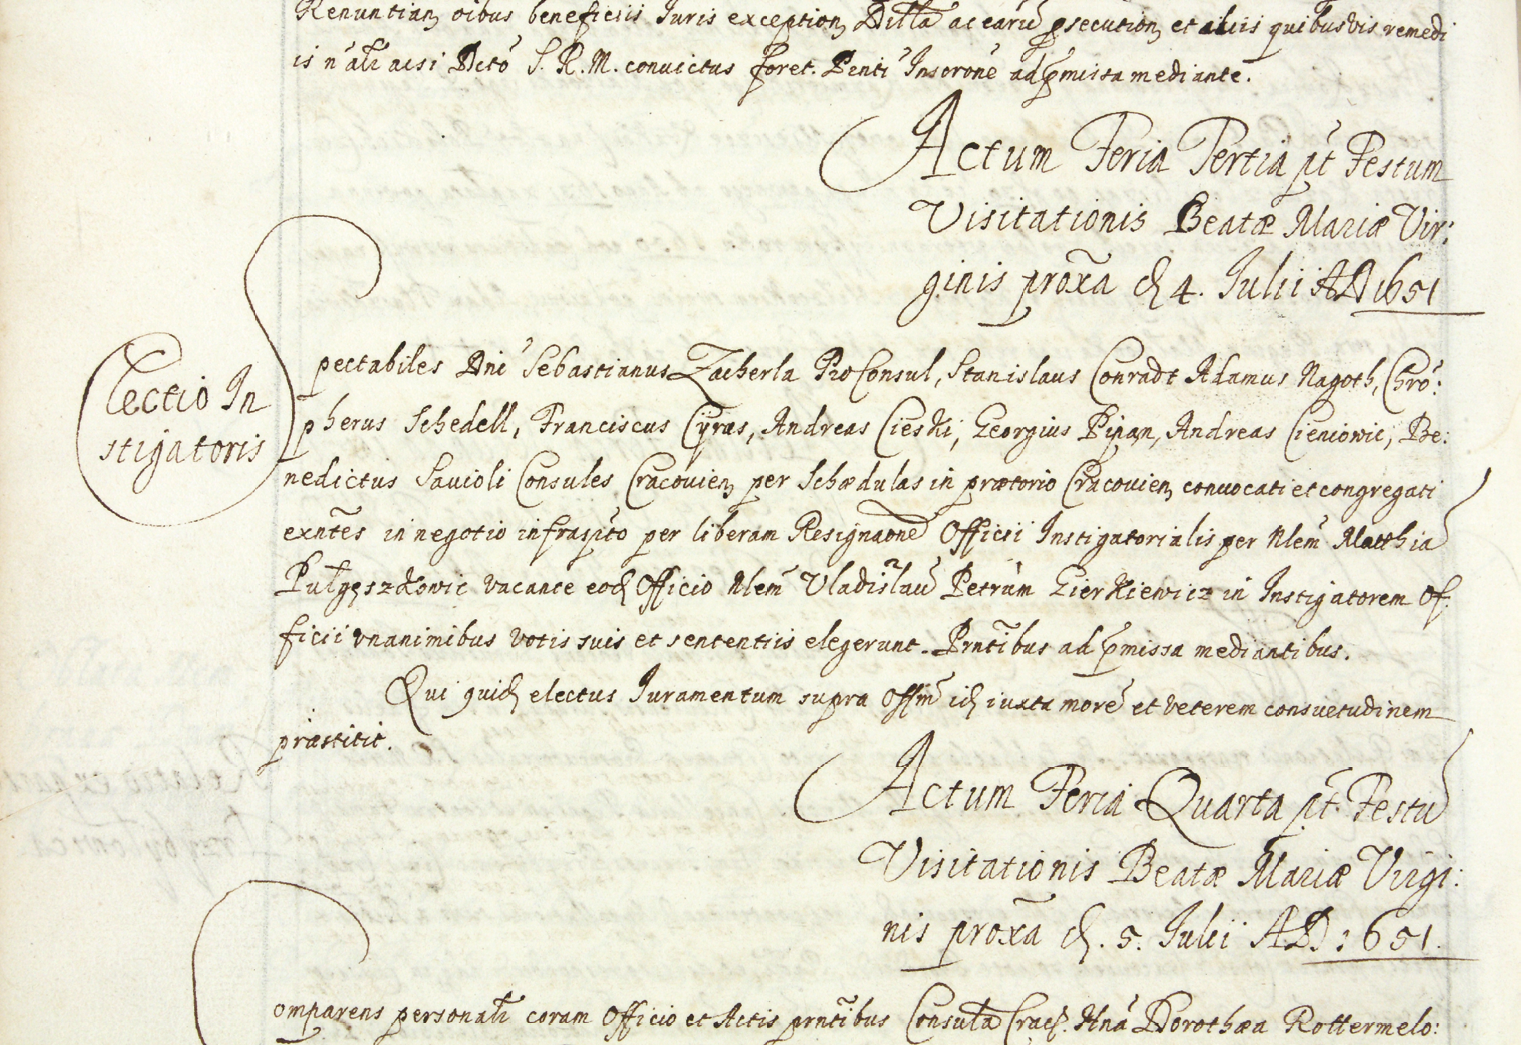 Renuntian oibus beneficiis Iuris exception Dilla ac earu psecution et aliis quibusvis remedi
is n ali acsi Dcto S. R. M. convictus foret. Penti Inscrone ad pmissa mediante.
Actum Feria Tertia pt Festum
Visitationis Beatæ Mariæ Vir:
ginis proxa d 4. Iulii AD 1651
Electio In
stigatoris
Spectabiles Dni Sebastianus Zacherla ProConsul, Stanislaus Conradt Adamus Nagoth, Chro:
pherus Schedell, Franciscus Cyrus, Andreas Cieski, Georgius Pipan, Andreas Cieniowic, Be:
nedictus Savioli Consules Cracovien per Schædulas in prætorio Cracovien convocati et congregati
exntes in negotio infrascpto per liberam Resignaone Officii Instigatorialis per Nlem Matthia
vacante eod Officio Nlem Vladislau Petrum Gierkiewicz in Instigatorem Of:
ficii vnanimibus votis suis et sententiis elegerunt. Prntibus ad pmissa mediantibus.
Qui quid electus Iuramentum supra Offm id iuxta more et veterem consuetudinem
præstitit.
Actum Feria Quarta pt Festu
Visitationis Beatæ Mariæ Virgi:
nis proxa d. 5. Iulii AD: 651.
Comparens personali coram Officio et Actis prntibus Consula Crac. Hna Dorothæa Rottermelo: